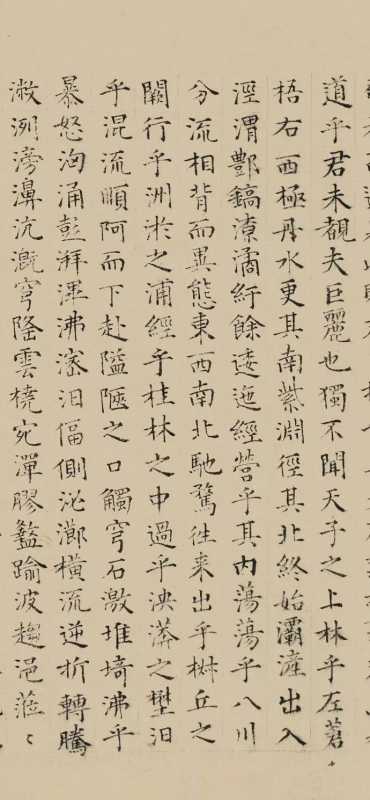 道乎君未覩夫巨麗也獨不聞天子之上林乎左蒼
梧右西極丹水更其南紫淵徑其北終始灞滻出入
涇渭酆鎬潦潏紆餘逶迤經營乎其內蕩蕩乎八川
分流相背而異態東西南北馳騖往来出乎椒丘之
闕行乎洲淤之浦經乎桂林之中過乎泱漭之壄汩
乎混流順阿而下赴隘陿之口觸穹石激堆埼沸乎
暴怒洶涌彭湃滭沸滵汩偪側泌瀄橫流逆折轉騰
潎洌滂濞沆溉穹隆雲橈宛潬膠盭踰波趨浥蒞〻